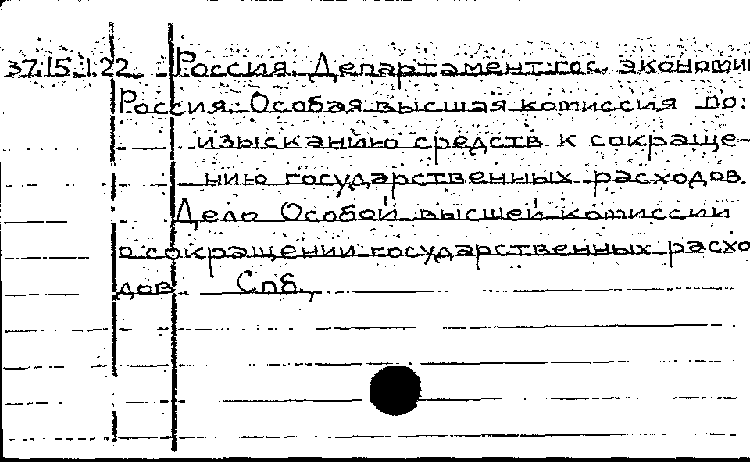 37.15.1.22 Россия. Департамент гос. экономии
Россия. Особая высшая комиссия по
изысканию средств к сокраще-
нию государственных расходов.
Дело Особой высшей комиссии
о сокращении государственных расхо
дов. Спб.,